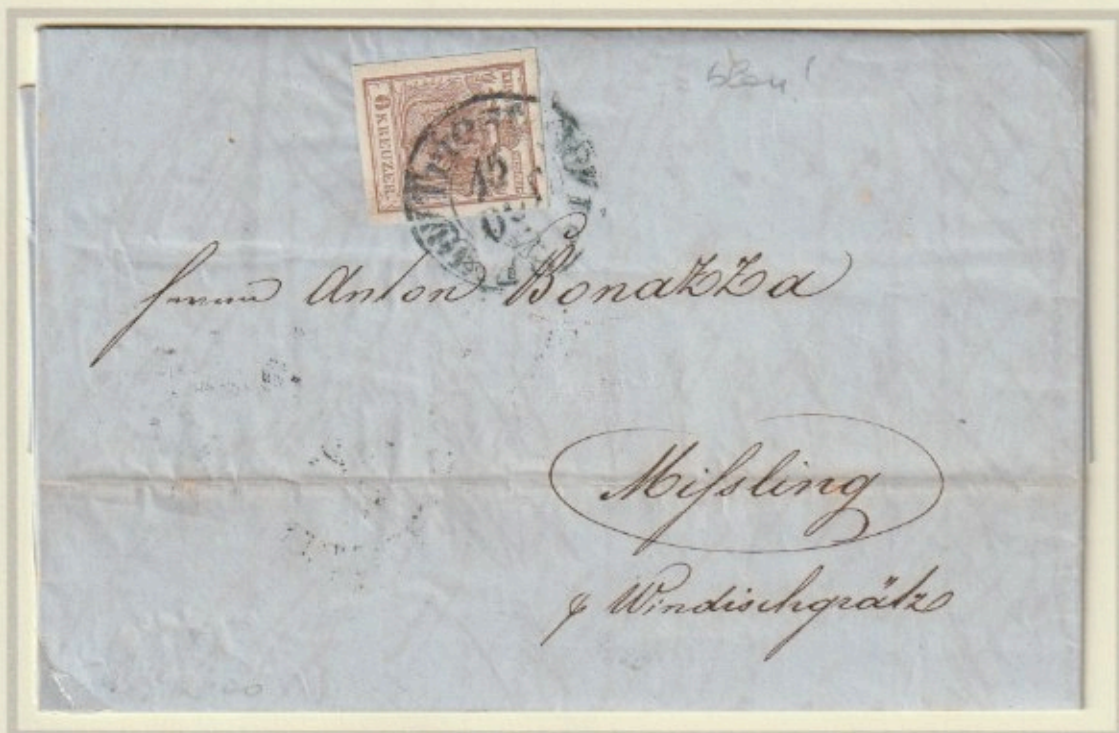 blau!
6 KREUZER.
15
Herrn Anton Bonazza
Mißling
Windischgrätz